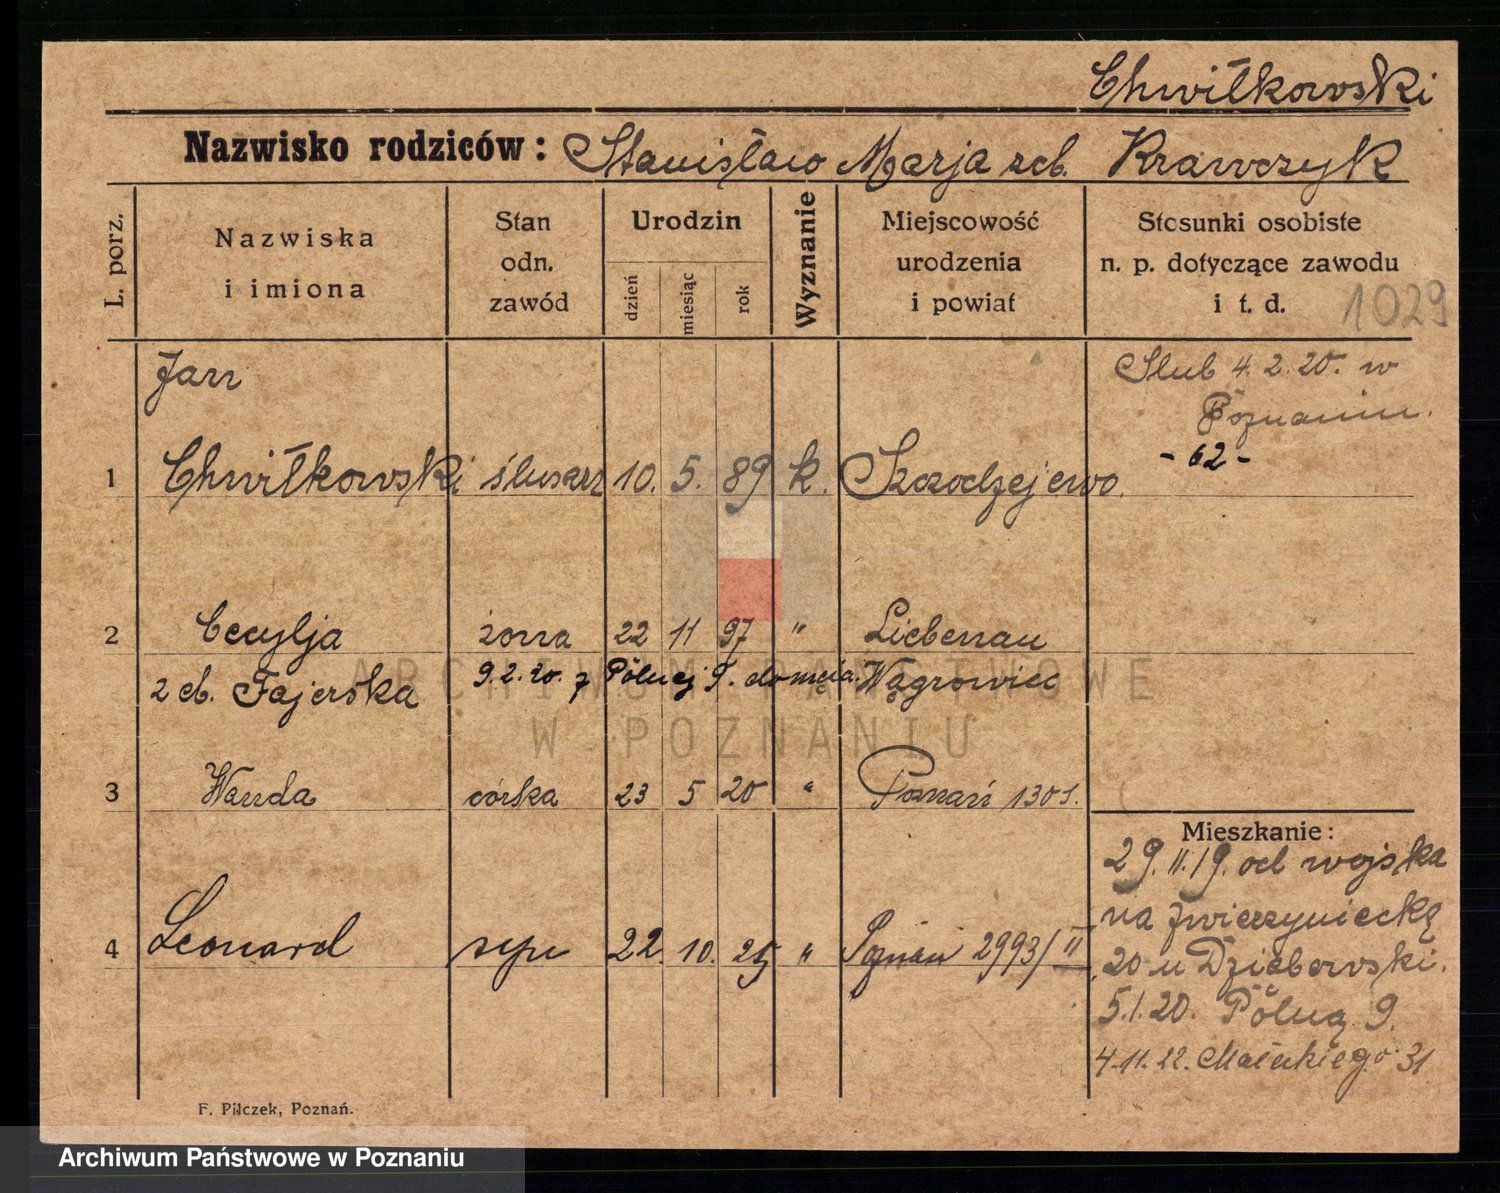 Chwiłkowski
Nazwisko rodziców: Stanisław Marja zcb. Krawczyk
L. porz.
Nazwiska i imiona
Stan odn. zawód
Urodzin
dzień
miesiąc
rok
Wyznanie
Miejscowość urodzenia i powiat
Stosunki osobiste n. p. dotyczące zawodu i t. d.
1029
Jan
Slub 4.2.20. w
Poznaniu.
-62-
1 Chwiłkowski ślusarz 10. 5. 89 k. Szczodzejewo.
2 Cecylja żona 22 11 97 " Liebenau
z cb. Fajerska 9.2.20. z Pólnej 9. Wągrowiec
3 Wanda córka 23 5 20 " Poznań 1301.
4 Leonard syn 22. 10. 25 " Poznań 2993/II
Mieszkanie:
29.11.19. od wojska
na Zwierzyniecką
20 u Dzieborski.
5.1.20. Pólną 9.
4.11.22. Małeckiego 31
F. Pilczek, Poznań.
ARCHIWUM PAŃSTWOWE
W POZNANIU
Archiwum Państwowe w Poznaniu